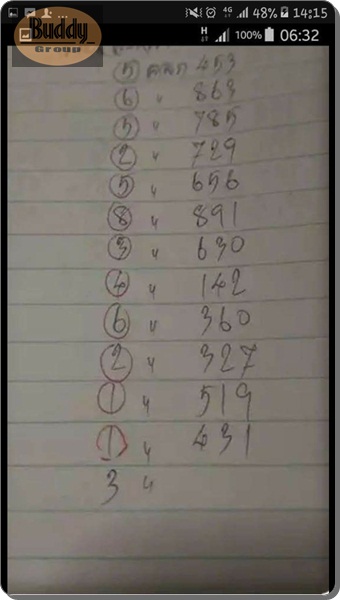 ... 4G 48% 14:15
Buddy_
Group
H 100% 06:32
5 ออก 453
6 " 863
5 " 785
2 " 729
5 " 656
8 " 891
3 " 630
4 " 142
6 " 360
2 " 327
1 " 519
1 " 431
3 "